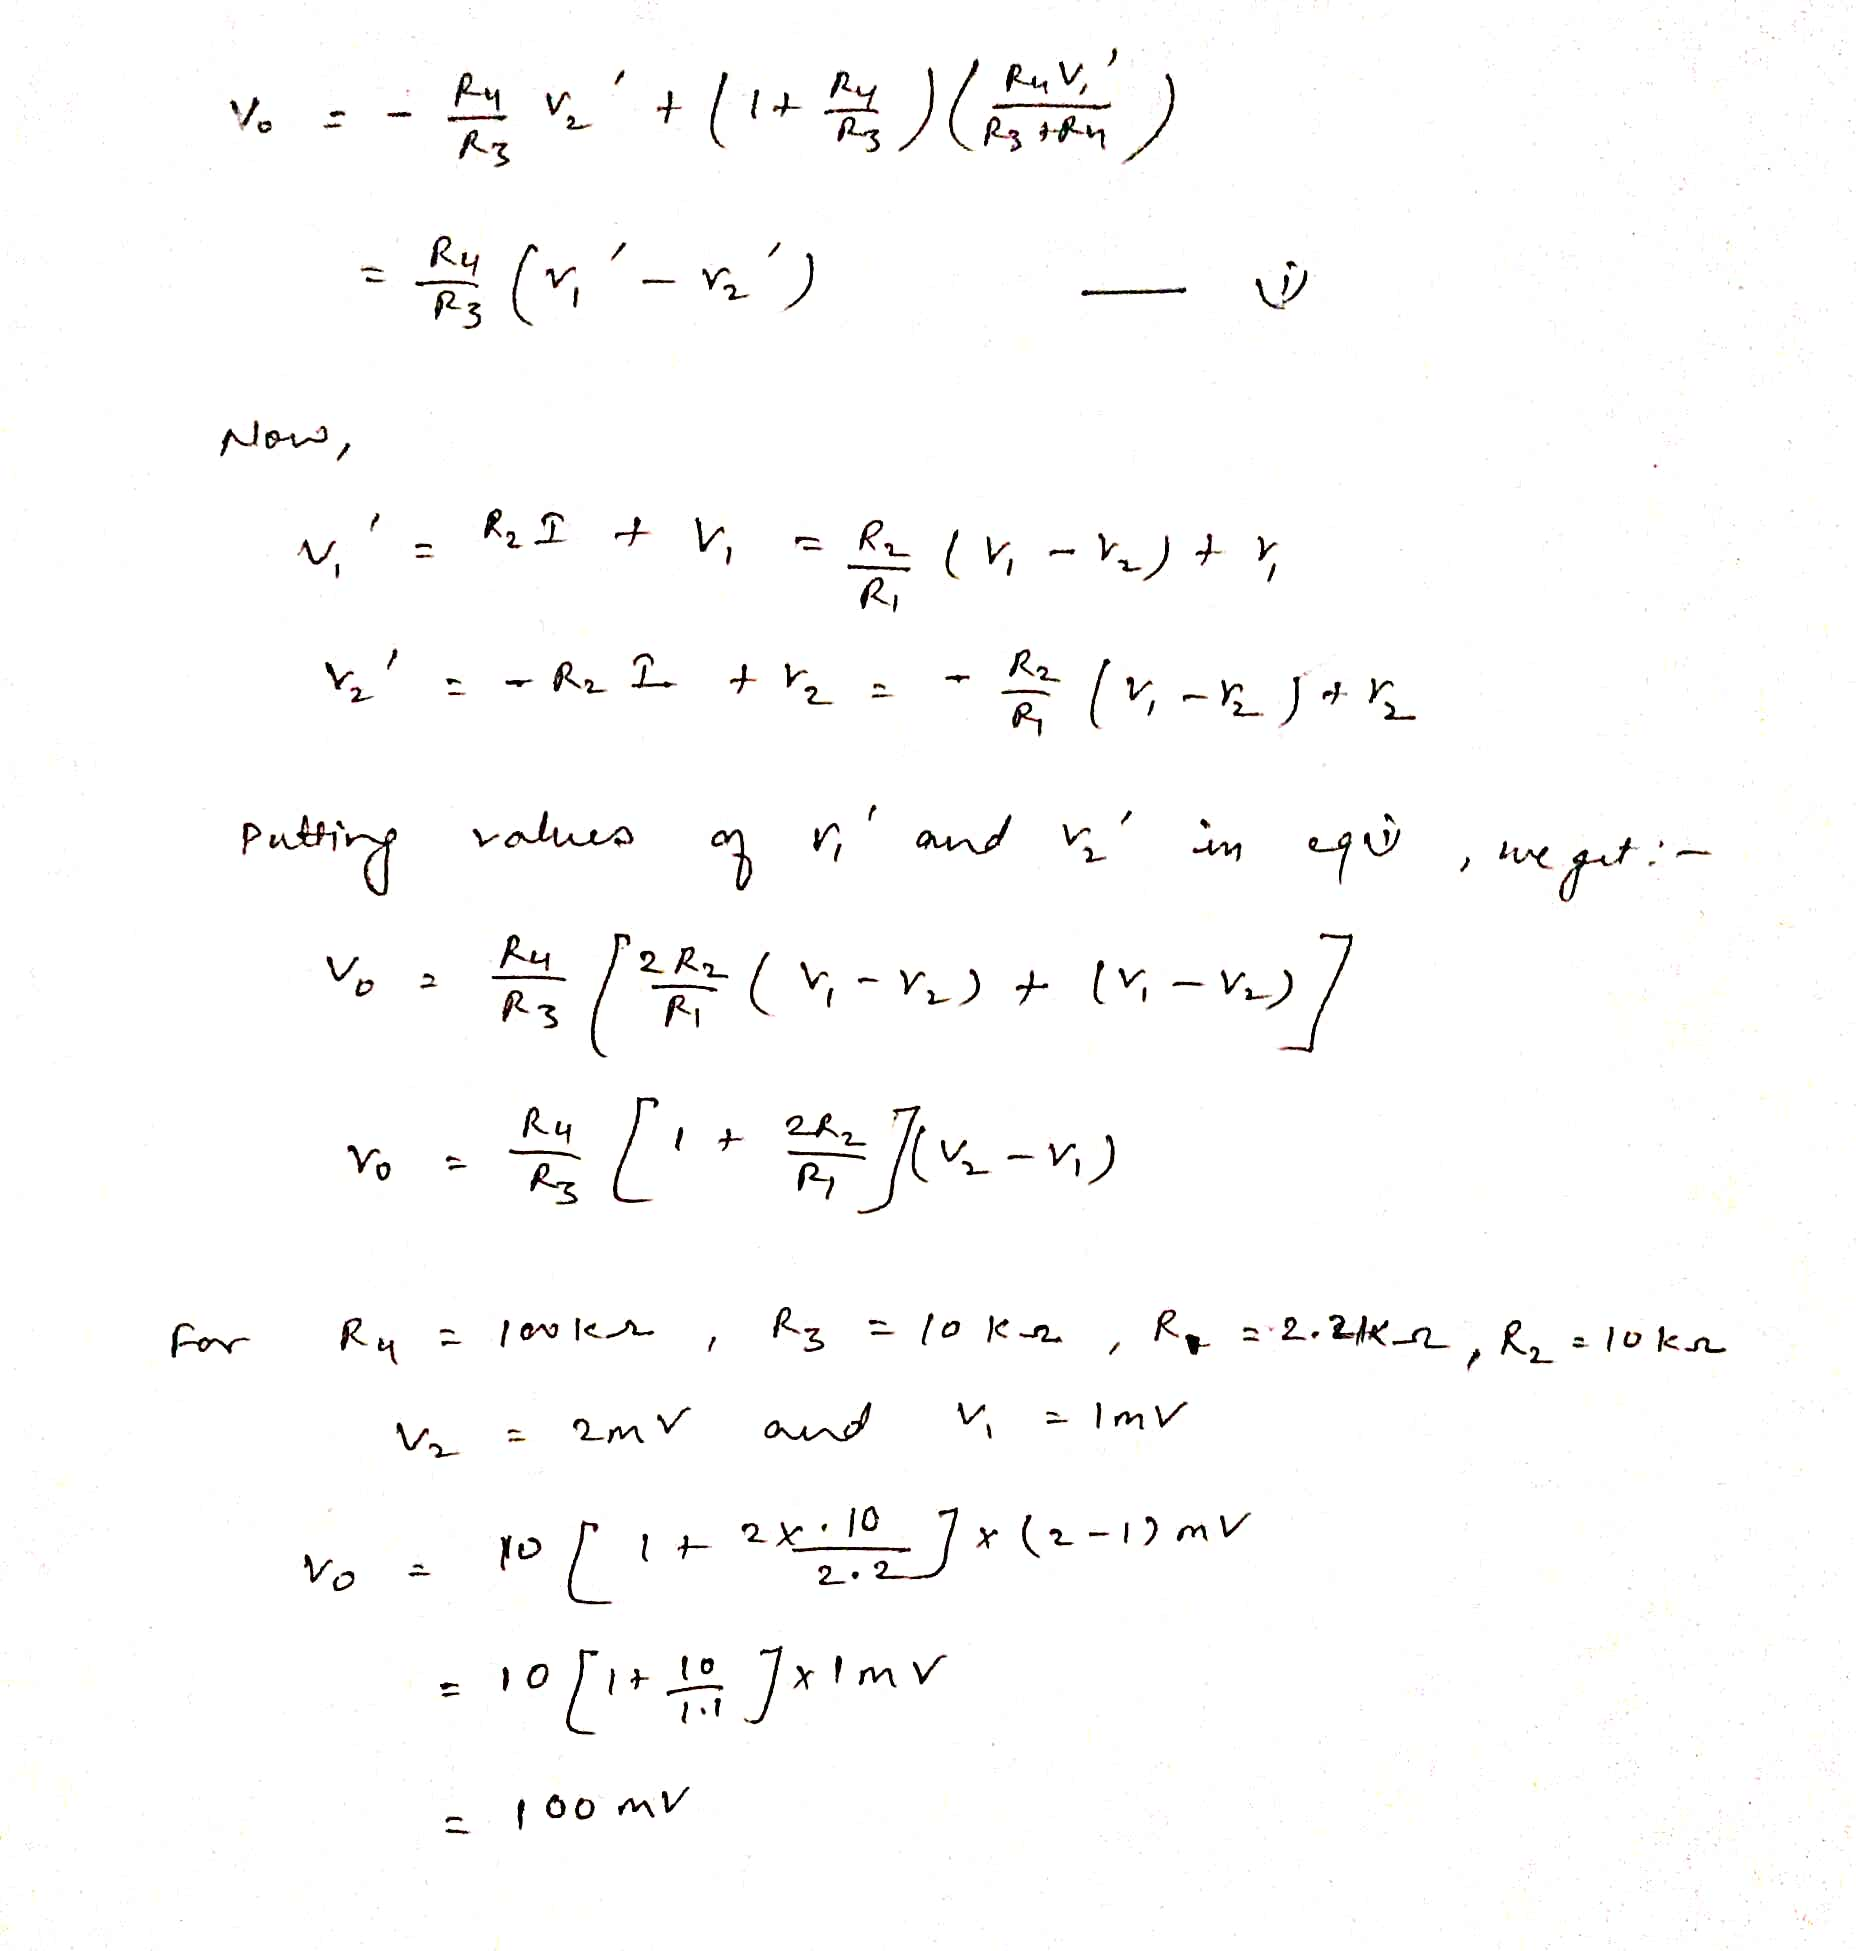 V₀ = - R₄/R₃ V₂' + (1 + R₄/R₃)(R₄V₁'/(R₃+R₄))
= R₄/R₃ (V₁' - V₂') — (i)
Now,
V₁' = R₂I + V₁ = R₂/R₁ (V₁ - V₂) + V₁
V₂' = - R₂I + V₂ = - R₂/R₁ (V₁ - V₂) + V₂
Putting values of V₁' and V₂' in eq(i), we get :-
V₀ = R₄/R₃ [2R₂/R₁ (V₁ - V₂) + (V₁ - V₂)]
V₀ = R₄/R₃ [1 + 2R₂/R₁](V₂ - V₁)
For R₄ = 100kΩ, R₃ = 10kΩ, R = 2.2kΩ, R₂ = 10kΩ
V₂ = 2mV and V₁ = 1mV
V₀ = 10 [1 + 2×10/2.2] × (2-1) mV
= 10 [1 + 10/1.1] × 1mV
= 100 mV